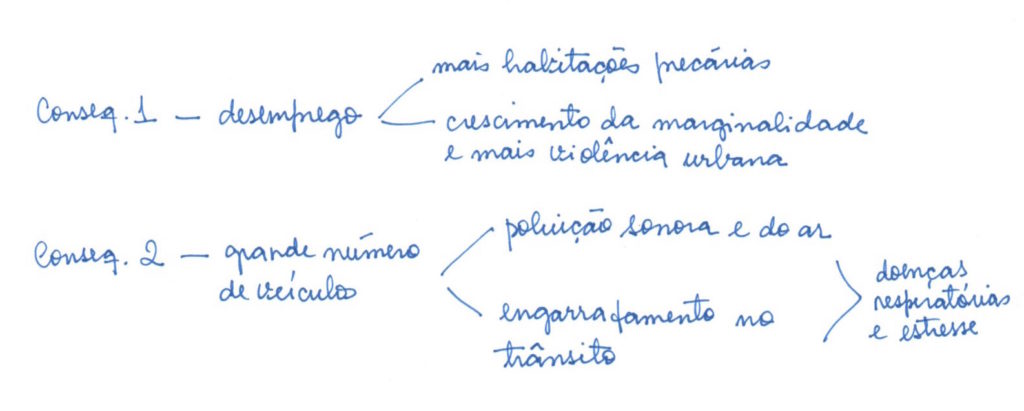 mais habitações precárias
Conseq. 1 — desemprego
crescimento da marginalidade
e mais violência urbana
Conseq. 2 — grande número
de veículos
poluição sonora e do ar
engarrafamento no
trânsito
doenças
respiratórias
e estresse